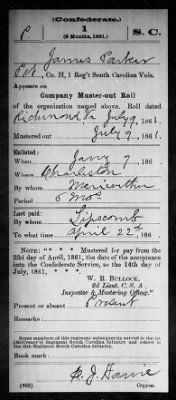 (Confederate.)
P. 1 S. C.
(6 Months, 1861.)
James Parker
Pvt, Co. H, 1 Reg't South Carolina Vols.
Appears on
Company Muster-out Roll
of the organization named above. Roll dated
Richmond Va July 9, 1861.
Mustered out July 9, 1861.
Enlisted:
When Jany 7, 186 .
Where Charleston
By whom Meriwether
Period 6 Mos
Last paid:
By whom Lipscomb
To what time April 22d, 186 .
NOTE: * * * Mustered for pay from the
23d of April, 1861, the date of the acceptance
into the Confederate Service, to the 14th day of
July, 1861, * * *
W. R. BULLOCK,
2d Lieut. C. S. A.,
Inspector & Mustering Officer."
Present or absent Present
Remarks:
Some members of this regiment subsequently served in the 1st
(McCreary's) Regiment South Carolina Infantry
Regiment South Carolina Infantry.
Book mark:
(655) Copyist.